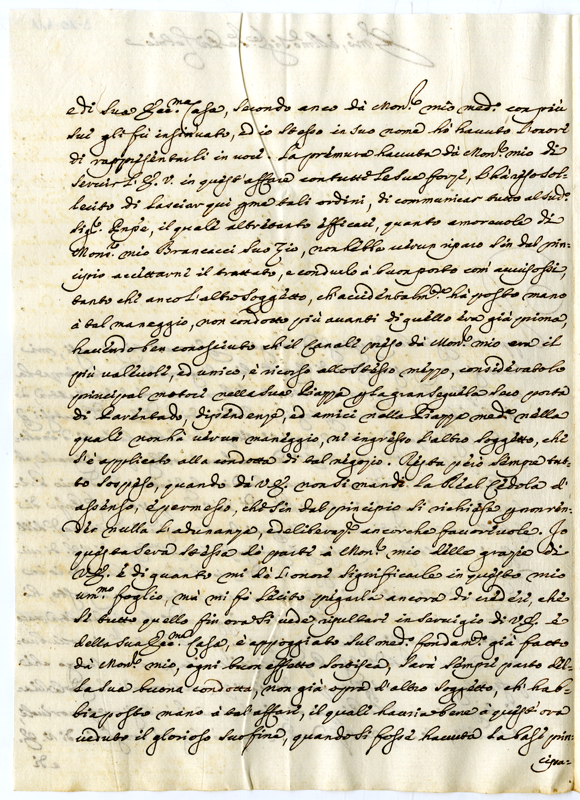 e di sua Ecc.ma Casa, secondo anco dà Mons.r mio med.o con più
sui gli fù insinuato, ed io stesso in suo nome hò havuto l'honore
di rappresentarli in voce. La premura havuta dà Mons.r mio di
servir l'E. V. in quest'affare con tutte le sue forze, l'hà reso sol-
lecito di lasciar qui gli me tali ordini, di communicar tutto al sud.o
Sig.r Enpe, il quale altretanto efficace, quanto amorevole di
Mons.r mio Brancacci suo Zio, non hebbe verun riparo sin dal prin-
cipio accettarne il trattato, e condurlo à buon porto com'avvisossi,
tanto che anco l'altro soggetto, ch'accidentalm.te hà posto mano
à tal maneggio, non condotto più avanti di quello era già prima,
havendo ben conosciuto che il Canale preso dà Mons.r mio era il
più valevole, ed unico, è ricorso allo stesso mezzo, consideratolo
principal motore nella sua Piazza p la gran sequela seco porta
di Parentado, dipendenze, ed amici nella Piazza med.a nella
quale non hà verun maneggio, ne ingresso l'altro soggetto, che
s'è applicato alla condotta di tal negozio. Resta però sempre tut-
to sospeso, quando dà V.E. non si mandi la Real Cedola d'
assenso, e permesso, che sin dal principio si richiese p non ren-
der nulla l'adunanza, e deliberaz.e ancorche favorevole. Io
questa sera stessa dò parte à Mons.r mio delle grazie di
V.E. e di quanto mi dò l'onore significarle in questo mio
um.mo foglio, mà mi fò lecito pigarla ancora di credere, che
se tutto quello fin'ora si vede risultare in servigio di V.E. e
della sua Ecc.ma Casa, è appoggiato sul med.o fondam.to già fatto
dà Mons.r mio, ogni buon effetto sortisca, sarà sempre parto del-
la sua buona condotta, non già opra d'altro soggetto, ch'hab-
bia posto mano à tal affare, il quale havria bene à quest'ora
veduto il glorioso suo fine, quando si fosse havuta la base prin-
cipa-